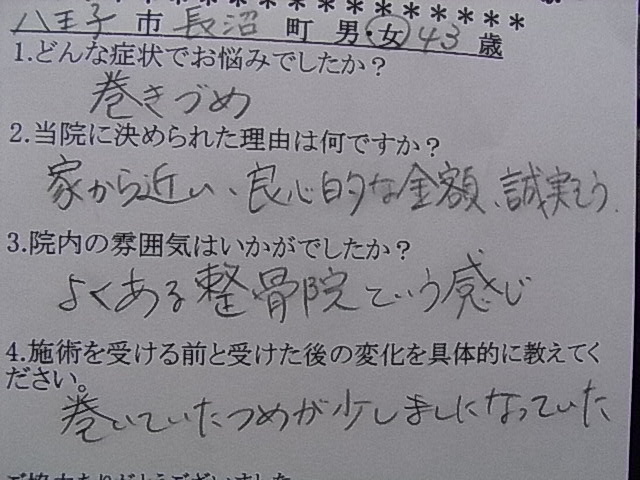 * * * * * * * * * * * * * * *
八王子 市 長沼 町 男・女 43 歳
1.どんな症状でお悩みでしたか？
巻きづめ
2.当院に決められた理由は何ですか？
家から近い、良心的な金額、誠実そう.
3.院内の雰囲気はいかがでしたか？
よくある整骨院ていう感じ
4.施術を受ける前と受けた後の変化を具体的に教えてく
ださい。
巻いていたつめが少しましになっていた
ご協力ありがとうございました